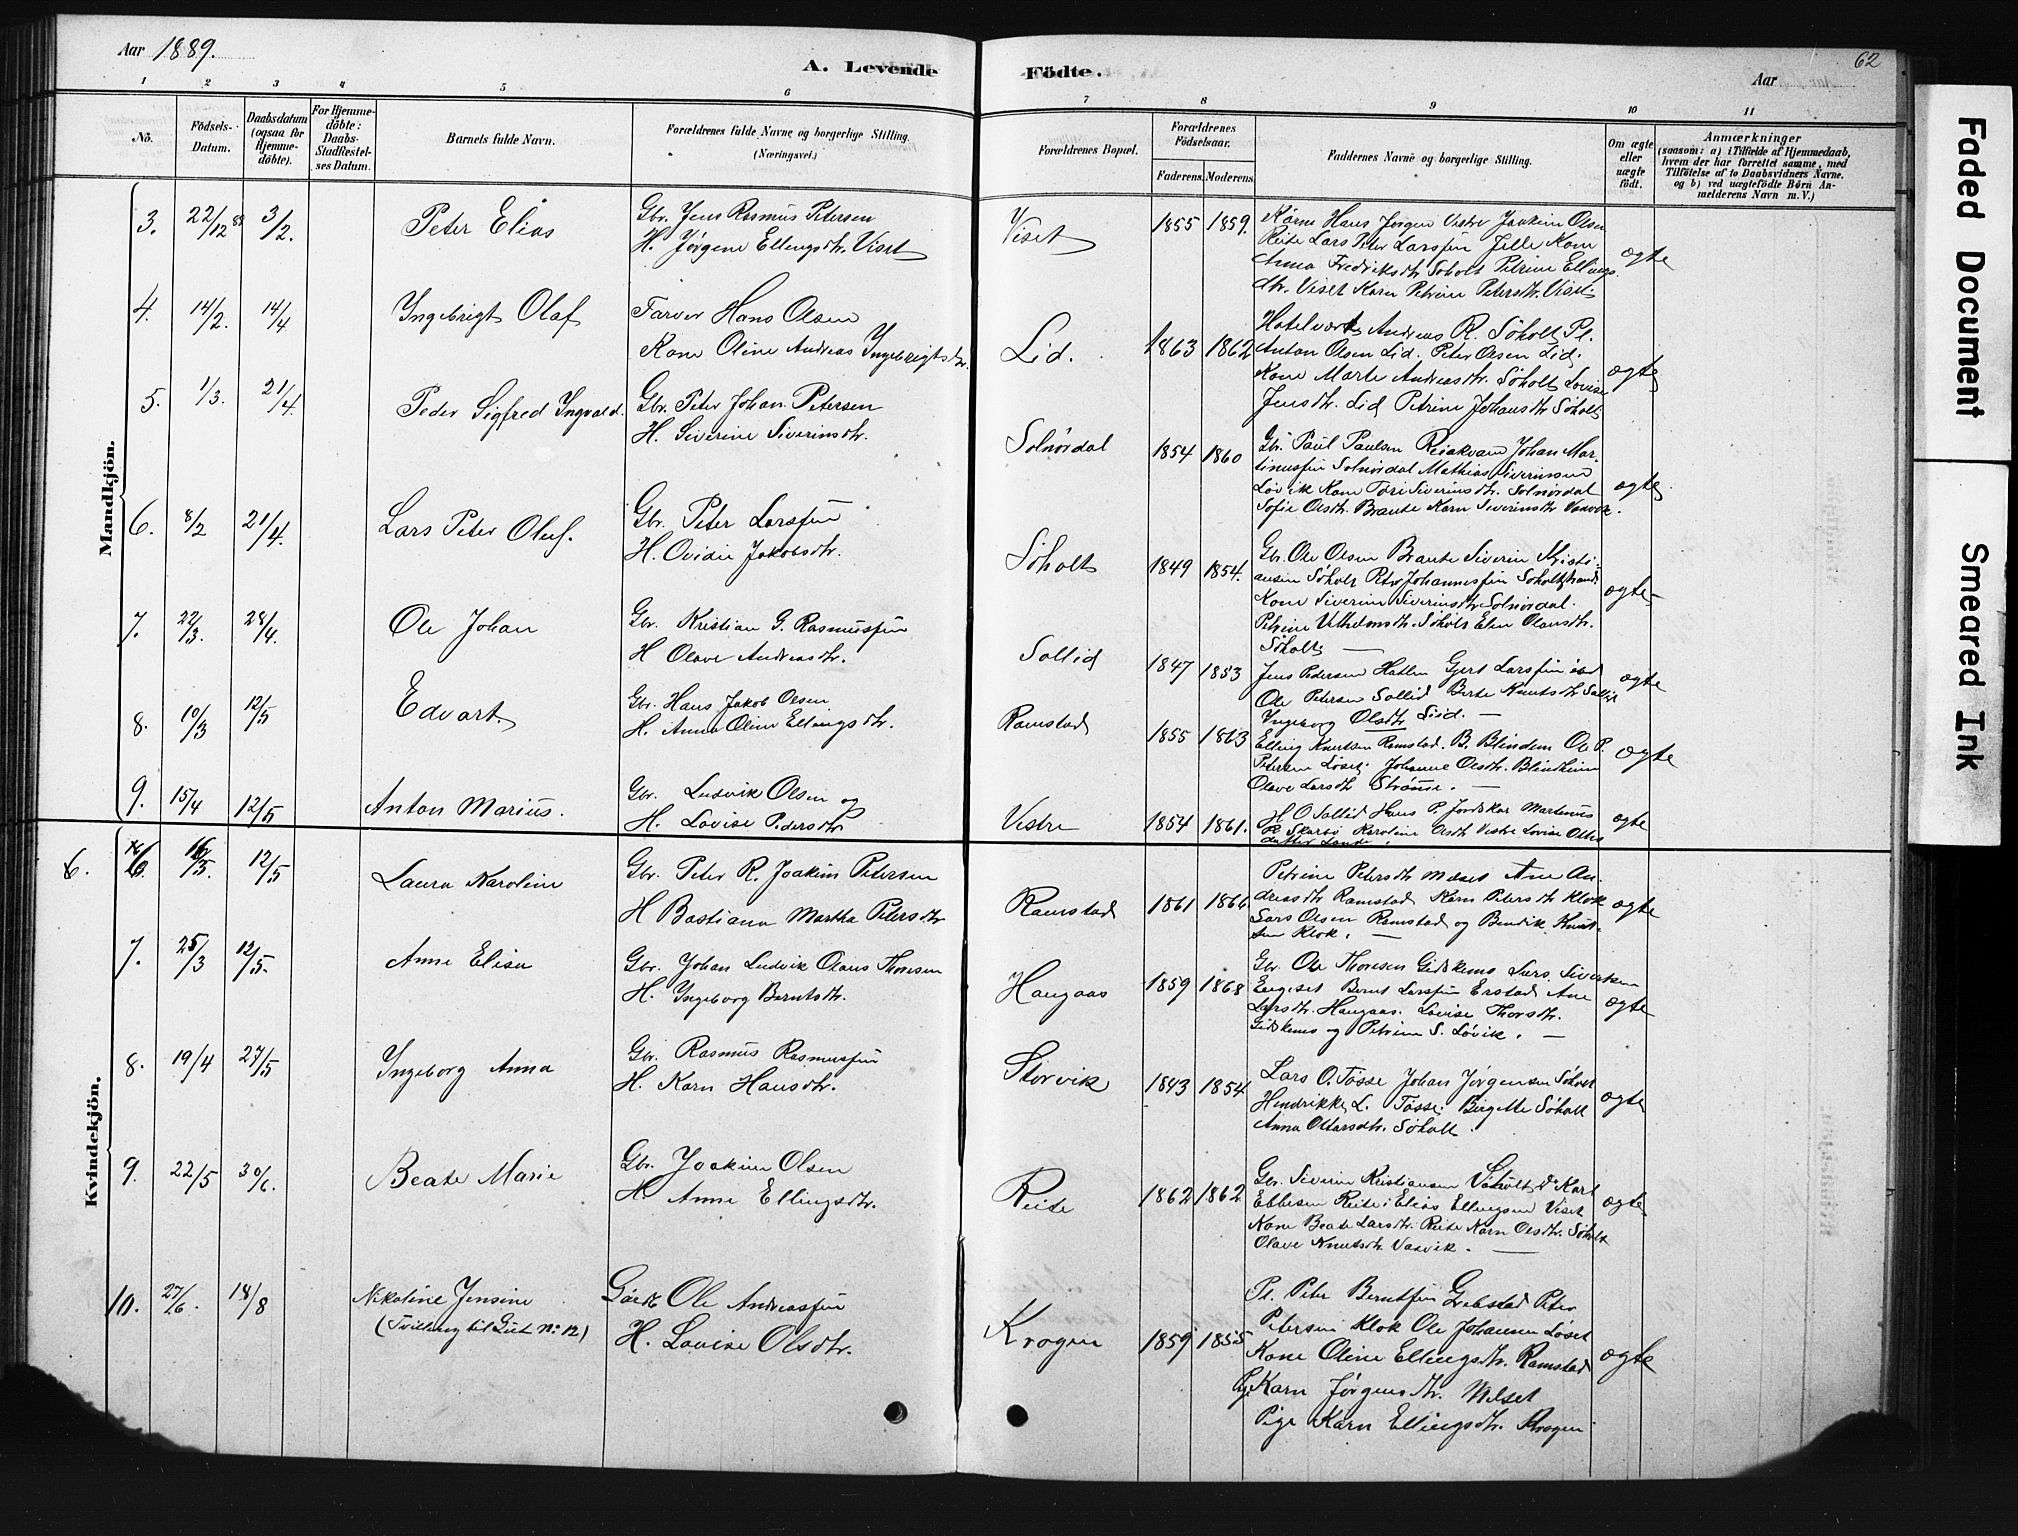 Aar 1889.
A. Levende Födte.
Aar
62
1 2 3 4 5 6 7 8 9 10 11
Nô.
Födsels-Datum.
Daabsdatum (ogsaa for Hjemme-döbte).
For Hjemme-döbte: Daabs-Stadfæstel-ses Datum.
Barnets fulde Navn.
Forældrenes fulde Navne og borgerlige Stilling. (Næringsvei.)
Forældrenes Bopæl.
Forældrenes Födselsaar.
Faderens. Moderens.
Faddernes Navne og borgerlige Stilling.
Om ægte eller uægte födt.
Anmærkninger
(saasom: a) i Tilfælde af Hjemmedaab, hvem der har forrettet samme, med Tilföielse af to Daabsvidners Navne. og b) ved uægtefödte Börn An-melderens Navn m. V.)
Mandkjön.
3. 22/12 88 3/2. Peter Elias
Gbr. Jens Rasmus Petersen
H. Jørgene Ellingsdtr. Viset
Viset 1855 1859.
Hans Jørgen Vestre Joakim Olsen
Reite Lars Peter Larssen Jelle Kone
Anna Fredriksdtr. Søholt Petrine Ellings-
dtr. Viset Karn Petrine Petersdtr. Viset.
ægte
4. 14/2. 14/4 Ingebrigt Olaf
Farver Hans Olsen
Kone Oline Andreas Ingebrigtsdtr.
Lid. 1863 1862
Hotelvært Andreas R. Søholt Pl.
Anton Olsen Lid. Peter Olsen Lid.
Kone Marte Andreasdtr. Søholt Lovise
Jensdtr. Lid Petrine Johansdtr Søholt
ægte
5. 1/3. 21/4. Peder Sigfred Ingvald.
Gbr. Peter Johan Petersen
H. Siverine Siverinsdtr.
Solnørdal 1854 1860
Gbr. Paul Paulsen Johan Mar-
tinussen Solnørdal Mathias Siverinsen
Løvik Kone Siverinsdtr. Solnørdal
Sofie Olsdtr. Braute Karn Siverinsdtr Vasvik.
ægte
6. 8/2 21/4. Lars Peter Oluf.
Gbr. Peter Larssen
H. Ovidie Jakobsdtr.
Søholt 1849 1854.
Gbr. Ole Olsen Braute Siverin Kristi-
ansen Søholt Peter Johannessen Søholtstrand
Kone Siverine Siverinsdtr. Solnørdal.
Petrine Vilhelmsdtr. Søholt Elen Olausdtr.
Søholt
ægte
7. 22/3. 28/4. Ole Johan
Gbr. Kristian G. Rasmussen
H Olave Andreasdtr.
Sollid 1847 1853
Jens Pedersen Hatlen Gjert Larssen
Ole Petersen Sollid Berte Knutsdtr Sollid
Ingeborg Olsdtr Liid.
ægte
8. 10/3 12/5 Edvart
Gbr. Hans Jakob Olsen
H. Anna Oline Ellingsdtr.
Ramstad 1855 1863
Elling Knutsen Ramstad. B. Blindem Ole P.
Petersen Løset. Johanne Olsdtr. Blindheim
Olave Larsdtr Strømme.
ægte
9. 15/4 12/5 Anton Marius.
Gbr. Ludvik Olsen og
H. Lovise Pedersdtr
Vestre 1854 1861.
H O Sollid Hans P. Martinus
P. Skarbø Karoline Olsdtr Vestre Lovise
datter Lande.
ægte
Kvindekjön.
6. 6 16/3. 12/5 Laura Karoline
Gbr. Peter R. Joakim Petersen
H Bastiana Martha Petersdtr
Ramstad 1861 1866
Petrine Petersdtr Melset Ane An-
dreasdtr Ramstad Karn Petersdtr Klok
Lars Olsen Ramstad og Bendik Knut-
sen Klok.
ægte
7. 25/3 12/5. Anne Elisa
Gbr. Johan Ludvik Olaus Thoresen
H. Ingeborg Berntsdtr.
Haugaas 1859 1868
Gbr. Ole Thoresen Gidskemo Lars Siversen
Engeset Bernt Larssen Erstad Ane
Larsdtr. Haugaas. Lovise Thorsdtr.
Gidskemo og Petrine S. Løvik.
ægte
8. 19/4 27/5 Ingeborg Anna
Gbr. Rasmus Rasmussen
H. Karn Hansdtr.
Storvik 1843 1854
Lars O. Tøsse Johan Jørgensen Søholt
Hendrikke L. Tøsse. Birgitte Søholt
Anna Ottarsdtr. Søholt.
ægte
9. 22/5 30/6. Beate Marie
Gbr. Joakim Olsen
H Anne Ellingsdtr.
Reite 1862 1862
Gbr. Siverin Kristiansen Søholt Karl
Ebbesen Reite Elias Ellingsen Viset
Kone Beate Larsdtr. Reite Karn Olsdtr. Søholt
Olave Knutsdtr Vasvik.
ægte
10. 27/6. 18/8 Nikoline Jensine
(Tvilling til Gut No: 12)
Ole Andreassen
H. Lovise Olsdtr.
Krogen 1859 1855
Pl. Peter Berntsen Grebstad Peter
Petersen Klok Ole Johansen Løset
Kone Oline Ellingsdtr. Ramstad
Pige Karn Jørgensdtr. Melset
Pige Karn Ellingsdtr. Krogen
ægte
Faded Document
Smeared Ink